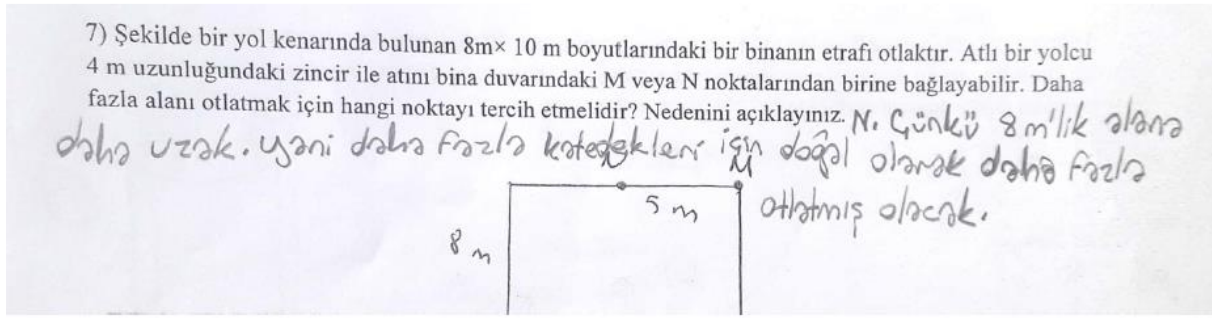 7) Şekilde bir yol kenarında bulunan 8m× 10 m boyutlarındaki bir binanın etrafı otlaktır. Atlı bir yolcu
4 m uzunluğundaki zincir ile atını bina duvarındaki M veya N noktalarından birine bağlayabilir. Daha
fazla alanı otlatmak için hangi noktayı tercih etmelidir? Nedenini açıklayınız. N. Çünkü 8m'lik alana
daha uzak. yani daha fazla katedekleri için doğal olarak daha fazla
otlatmış olacak.
M
5 m
8 m